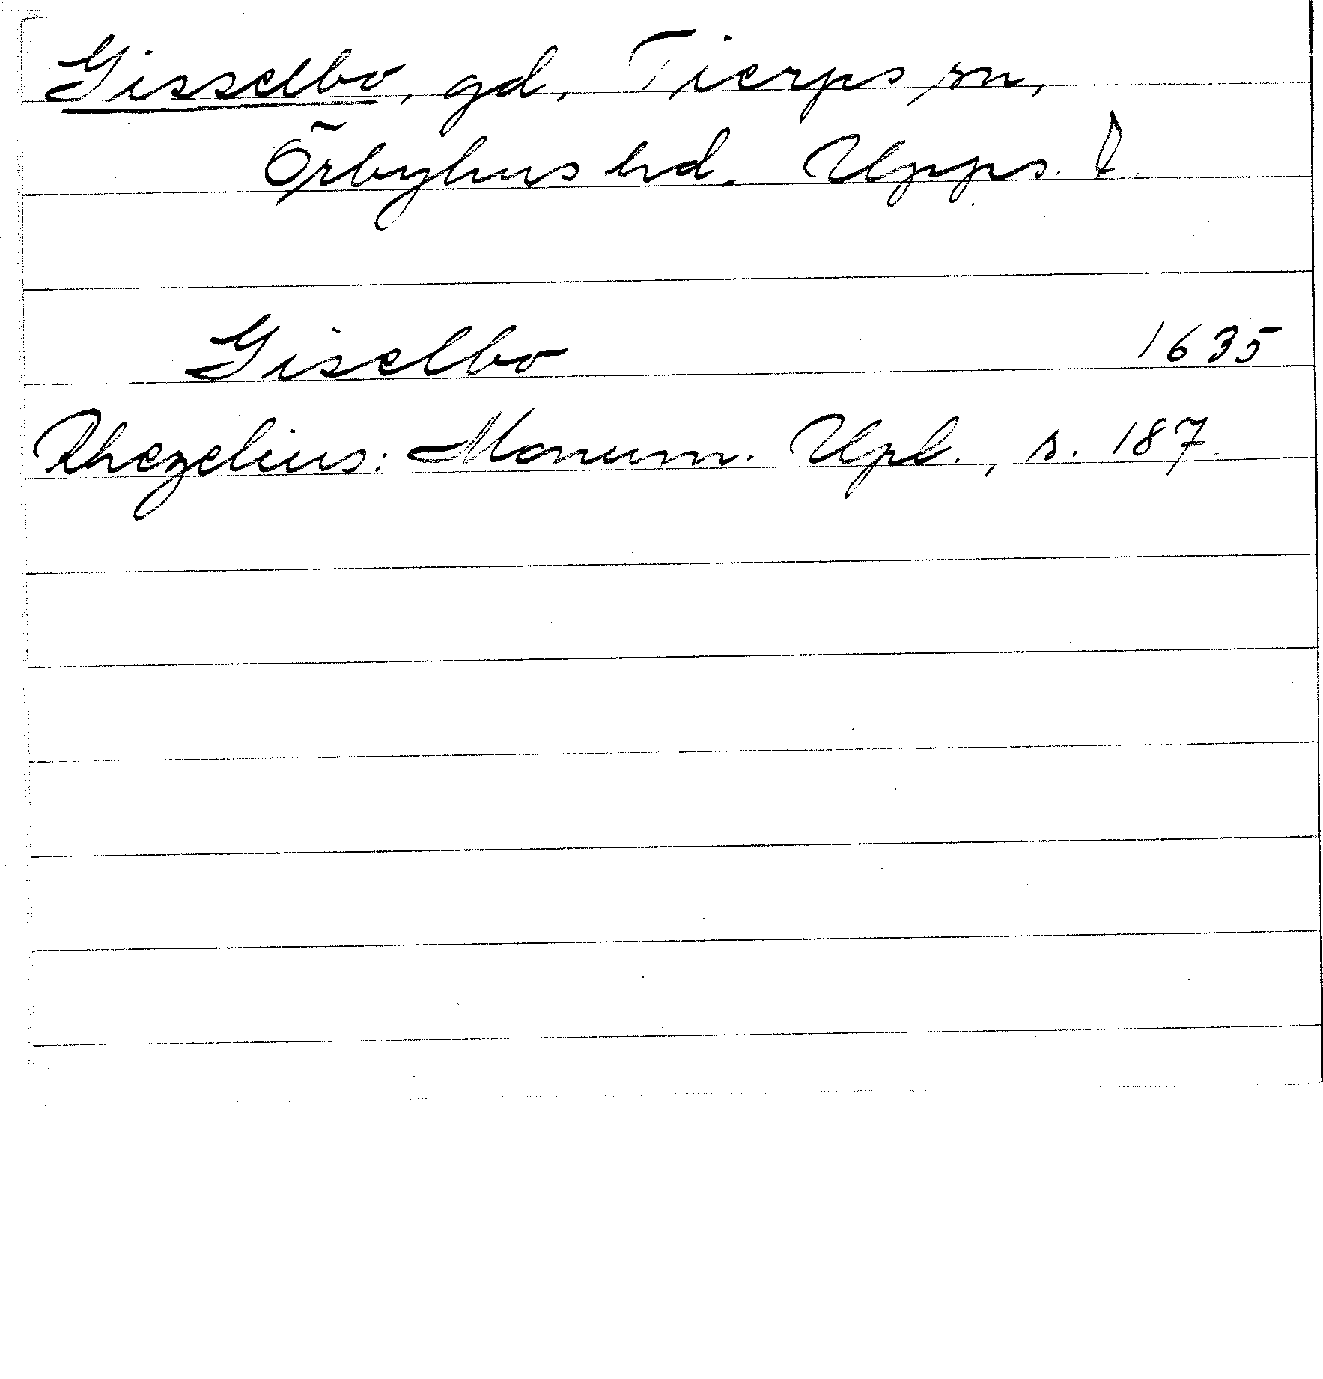 Gisselbo, gd, Tierps sn,
Örbyhus hd. Upps. l.
Giselbo 1635
Rhezelius: Monum. Upl., s. 187.